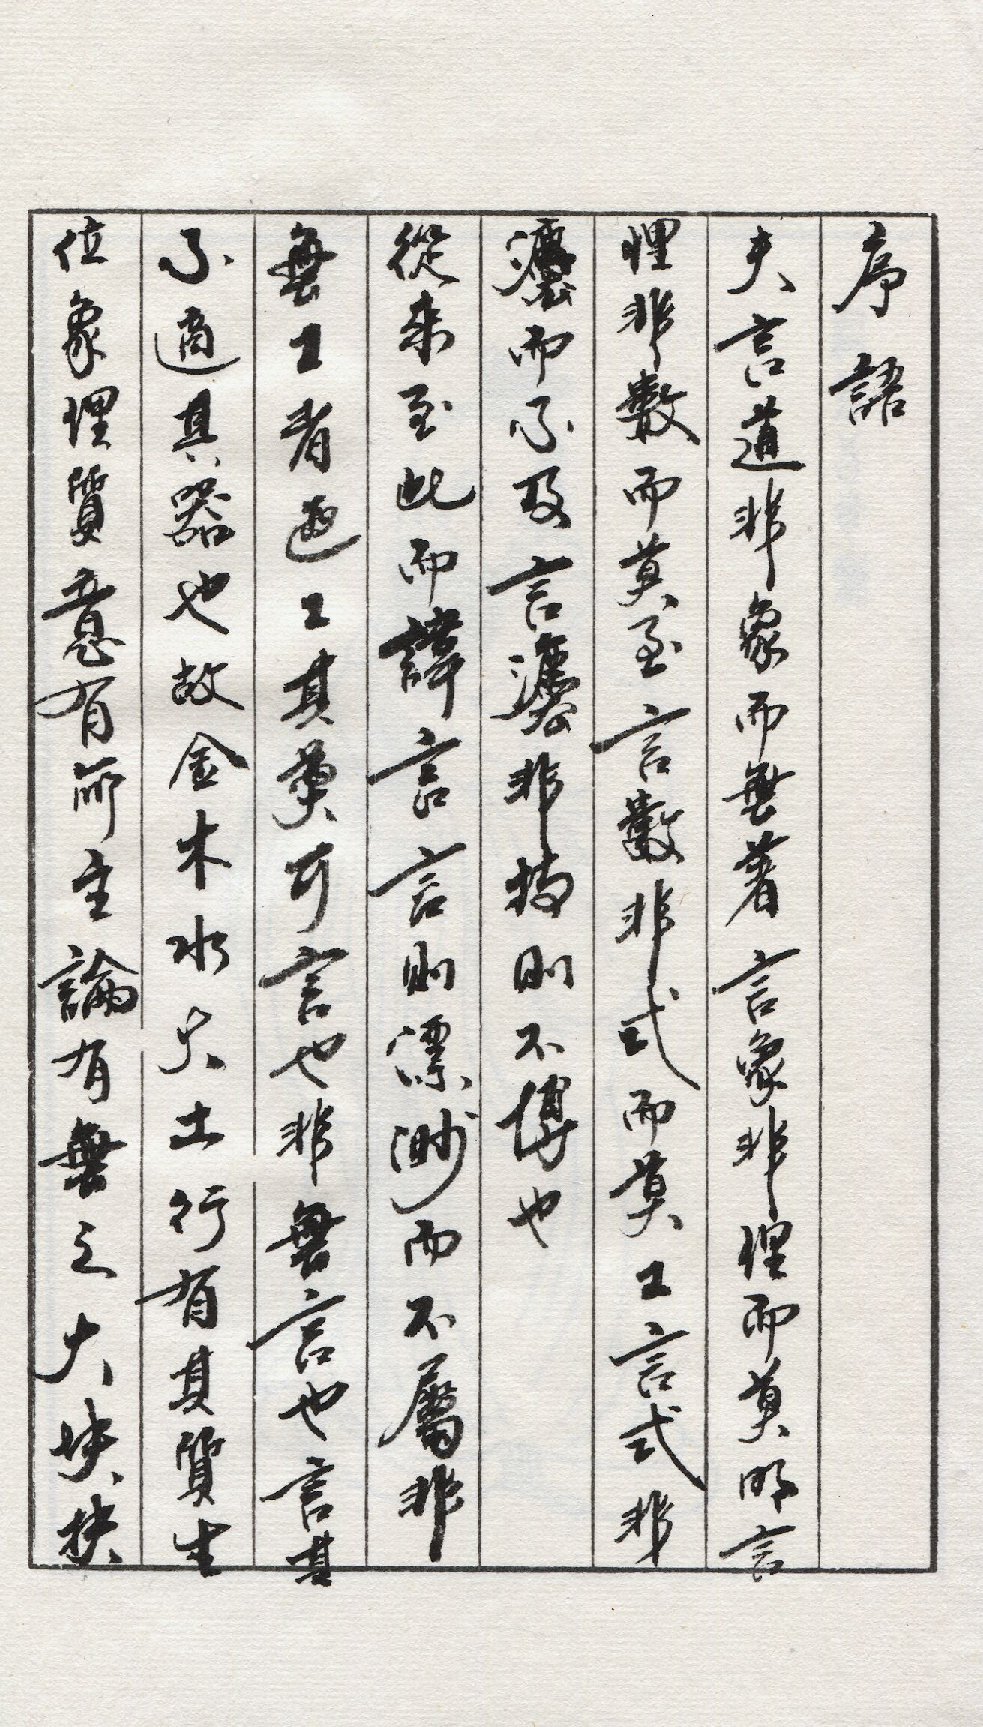 序語
夫言道非象而無著言象非理而莫明言
理非數而莫至言數非式而莫工言式非
而不及言非物則不博也
從來至此而諱言言則漂渺而不屬非
無工者遁工其奠可言也非無言也言其
不適其器也故金木水火土行有其質生
位象理質意有所主論有無之大塊挾